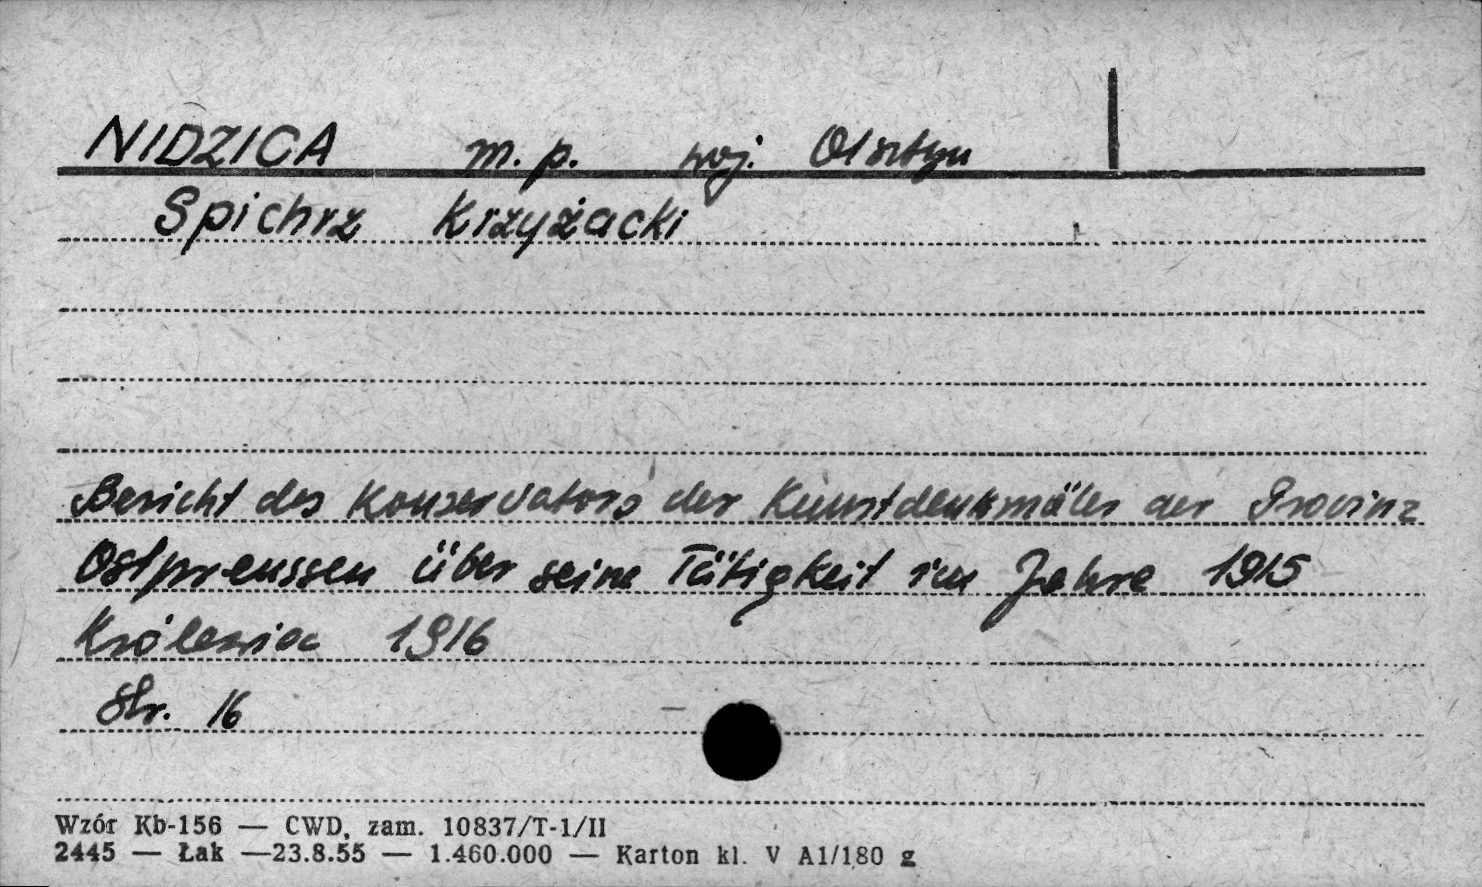 NIDZICA m. p. woj. Olsztyn
Spichrz Krzyżacki
Bericht des Konservators der Kunstdenkmäler der Provinz
Ostpreussen über seine Tätigkeit im Jahre 1915
Królewiec 1916
Str. 16
Wzór Kb-156 — CWD, zam. 10837/T-1/II
2445 — Łak —23.8.55 — 1.460.000 — Karton kl. V A1/180 g